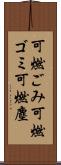 可燃ごみ可燃
ゴミ可燃塵